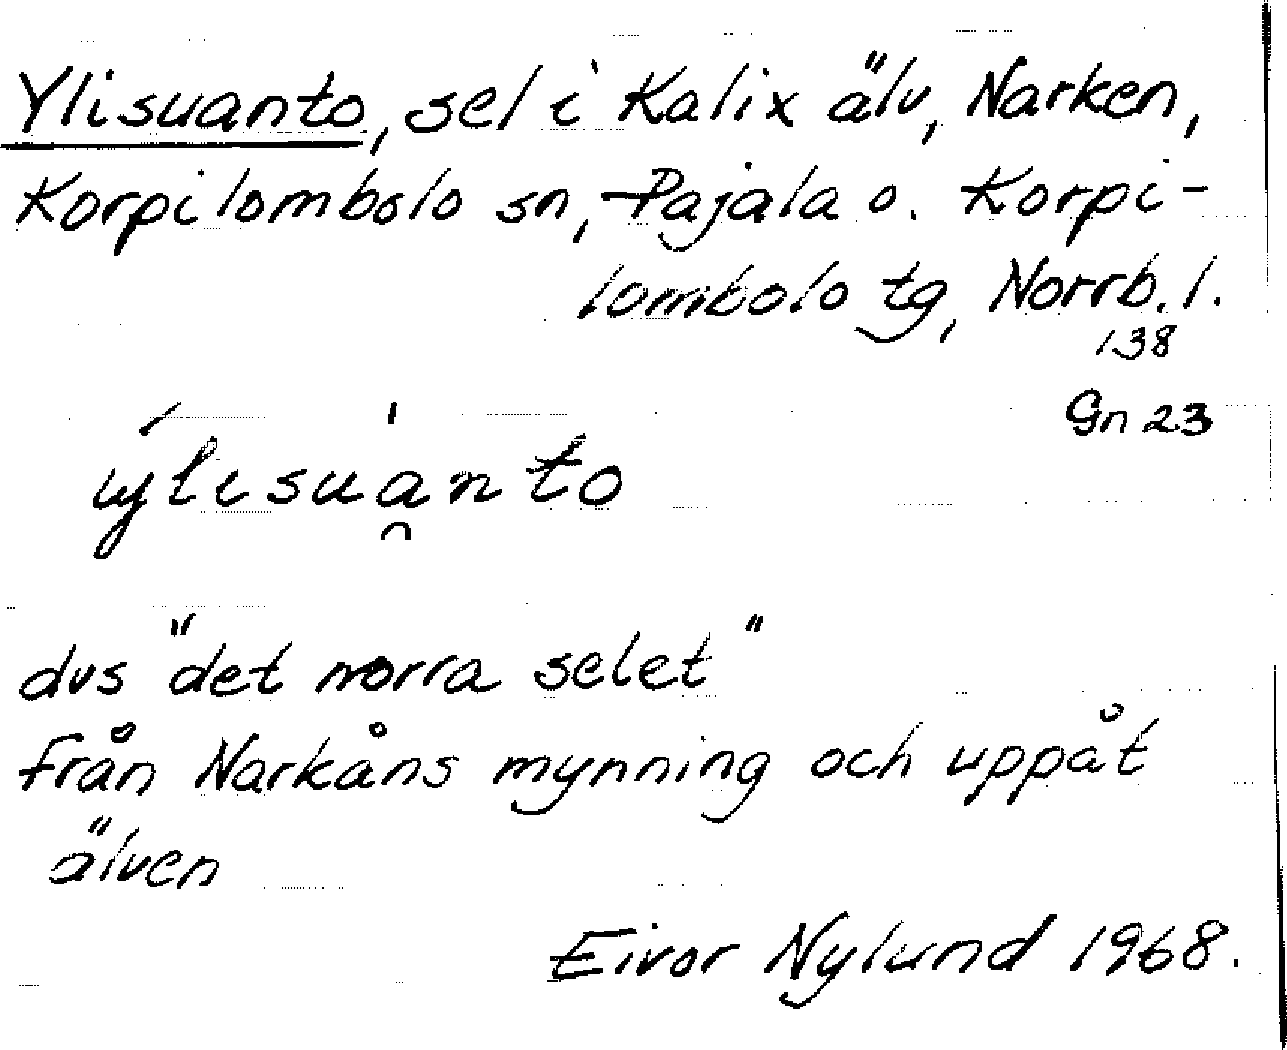 Ylisuanto, sel i Kalix älv, Narken,
Korpilombolo sn, Pajala o. Korpi-
lombolo tg, Norrb. l.
138
Gn 23
ýlisua̯nto
dvs "det norra selet"
från Narkåns mynning och uppåt
älven
Eivor Nylund 1968.